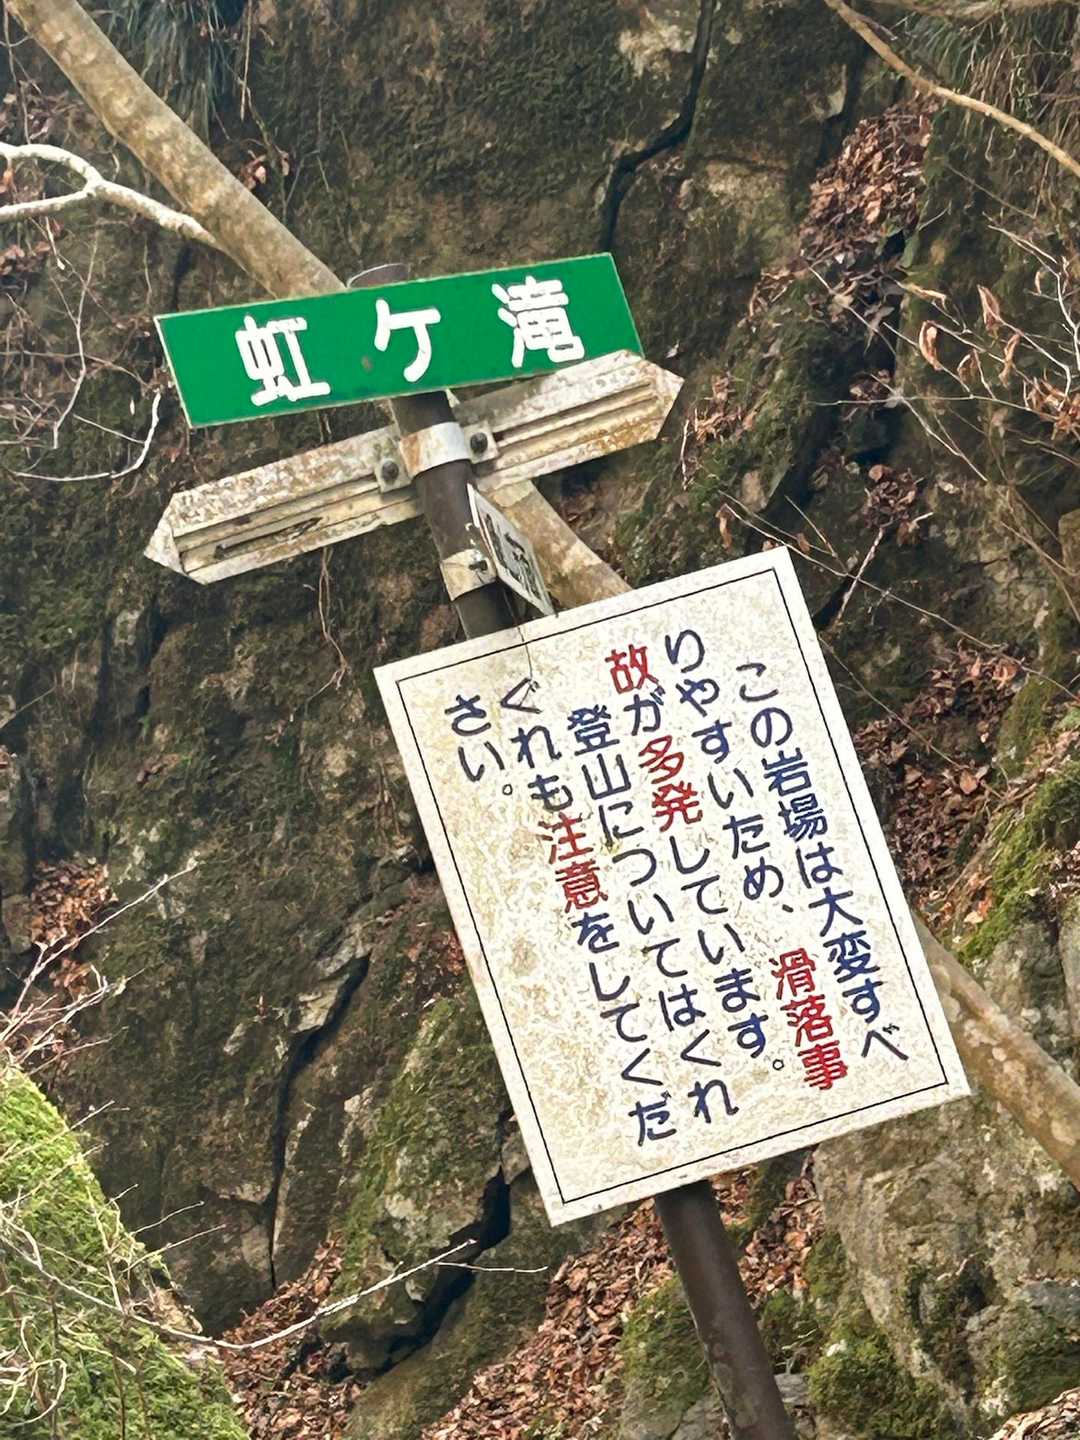 虹ケ滝
この岩場は大変すべ
りやすいため、滑落事
故が多発しています。
登山についてはくれ
ぐれも注意をしてくだ
さい。